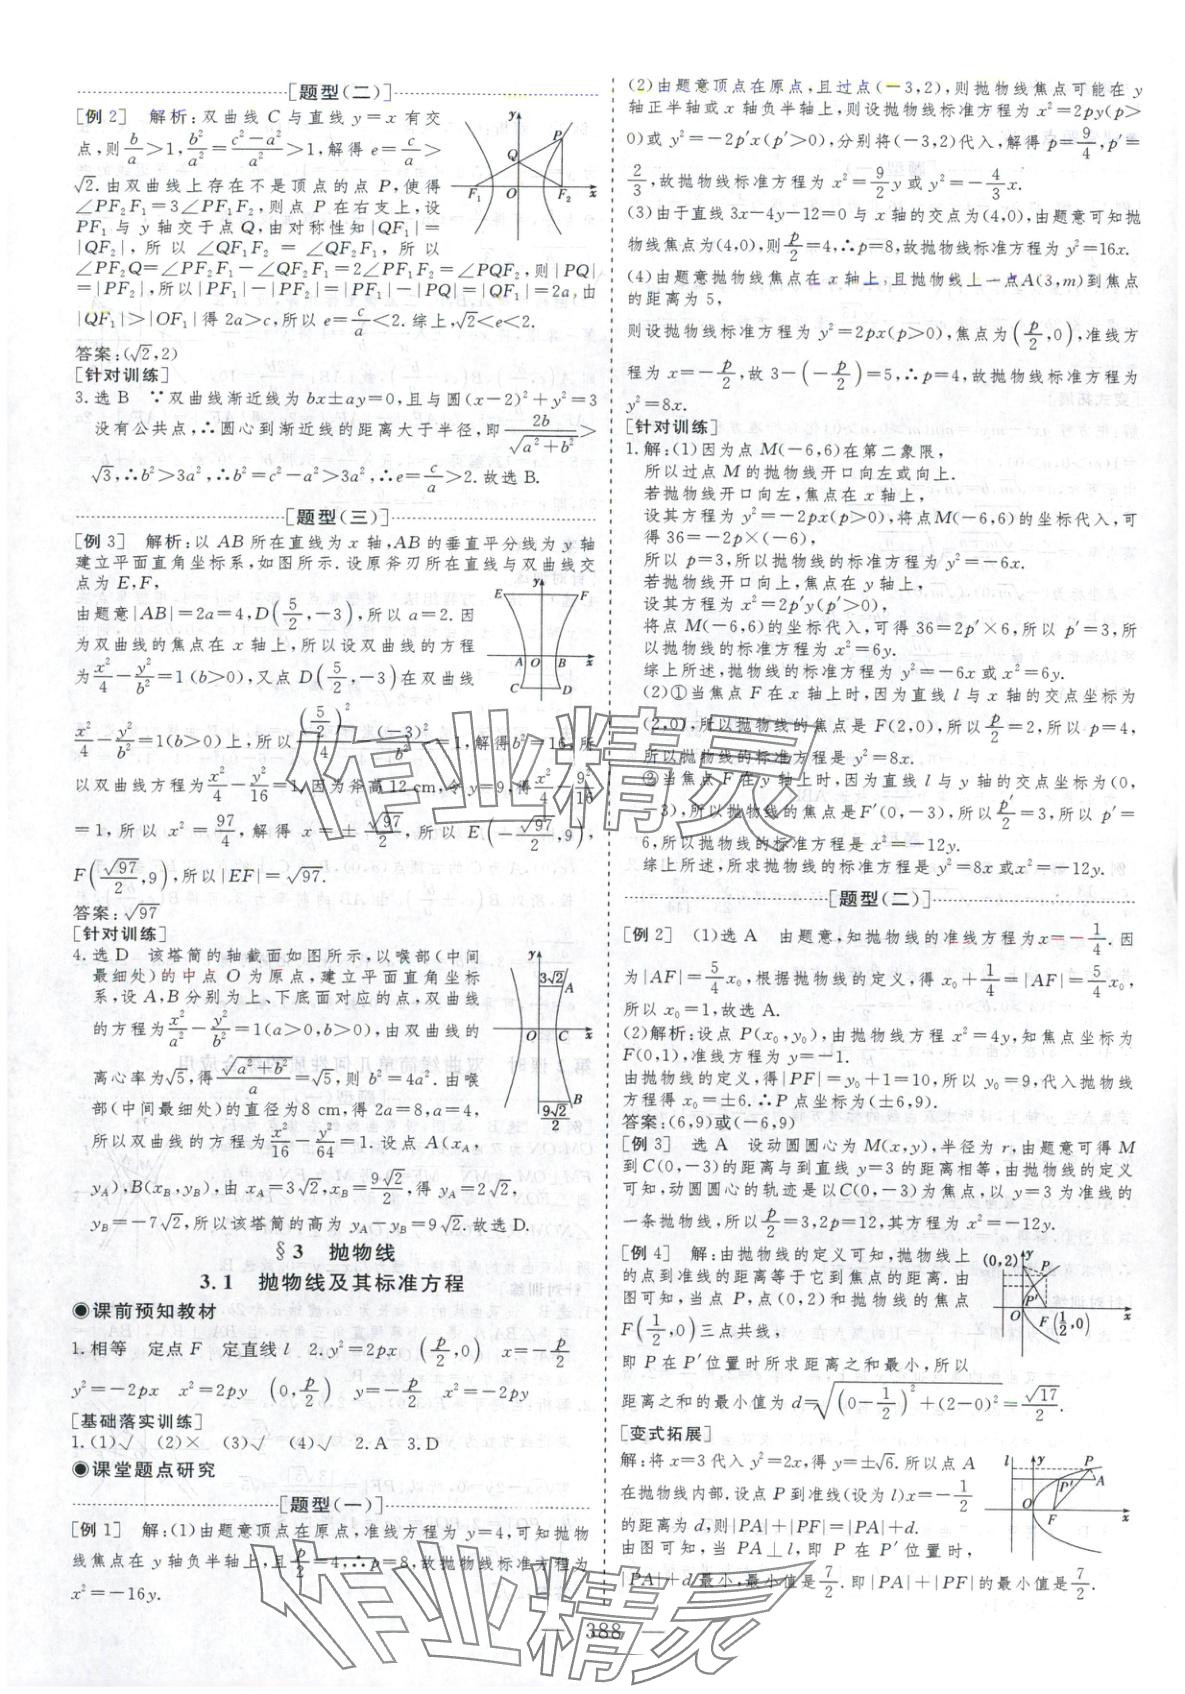 [题型(二)]
[例 2] 解析:双曲线 C 与直线 y=x 有交
点,则b/a>1,b²/a²=(c²-a²)/a²>1,解得 e=c/a>
√2.由双曲线上存在不是顶点的点 P,使得
∠PF₂F₁=3∠PF₁F₂,则点 P 在右支上,设
PF₁与 y 轴交于点 Q,由对称性知|QF₁|=
|QF₂|,所以∠QF₁F₂=∠QF₂F₁,所以
∠PF₂Q=∠PF₂F₁-∠QF₂F₁=2∠PF₁F₂=∠PQF₂,则|PQ|
=|PF₂|,所以|PF₁|-|PF₂|=|PF₁|-|PQ|=|QF₁|=2a,由
|QF₁|>|OF₁|得 2a>c,所以 e=c/a<2.综上,√2<e<2.
答案:(√2,2)
[针对训练]
3.选 B ∵双曲线渐近线为 bx±ay=0,且与圆(x-2)²+y²=3
没有公共点,∴圆心到渐近线的距离大于半径,即2b/√(a²+b²)>
√3,∴b²>3a²,∴b²=c²-a²>3a²,∴e=c/a>2.故选 B.
[题型(三)]
[例 3] 解析:以 AB 所在直线为 x 轴,AB 的垂直平分线为 y 轴
建立平面直角坐标系,如图所示.设原斧刃所在直线与双曲线交
点为 E,F,
由题意|AB|=2a=4,D(5/2,-3),所以 a=2.因
为双曲线的焦点在 x 轴上,所以设双曲线的方程
为x²/4-y²/b²=1(b>0),又点 D(5/2,-3)在双曲线
x²/4-y²/b²=1(b>0)上,所以(5/2)²/4-(-3)²/b²=1,解得b²=16,所
以双曲线方程为x²/4-y²/16=1,因为斧高12 cm,令 y=9,得x²/4-9²/16
=1,所以 x²=97/4,解得 x=±√97/2,所以 E(-√97/2,9),
F(√97/2,9),所以|EF|=√97.
答案:√97
[针对训练]
4.选 D 该塔筒的轴截面如图所示,以喉部(中间
最细处)的中点 O 为原点,建立平面直角坐标
系,设 A,B 分别为上、下底面对应的点,双曲线
的方程为x²/a²-y²/b²=1(a>0,b>0),由双曲线的
离心率为√5,得√(a²+b²)/a=√5,则 b²=4a².由喉
部(中间最细处)的直径为8 cm,得 2a=8,a=4,
所以双曲线的方程为x²/16-y²/64=1.设点 A(xA,
yA),B(xB,yB),由 xA=3√2,xB=9√2/2,得 yA=2√2,
yB=-7√2,所以该塔筒的高为 yA-yB=9√2.故选 D.
§3 抛物线
3.1 抛物线及其标准方程
●课前预知教材
1.相等 定点 F 定直线 l 2.y²=2px (p/2,0) x=-p/2
y²=-2px x²=2py (0,p/2) y=-p/2 x²=-2py
[基础落实训练]
1.(1)√ (2)× (3)√ (4)√ 2.A 3.D
●课堂题点研究
[题型(一)]
[例 1] 解:(1)由题意顶点在原点,准线方程为 y=4,可知抛物
线焦点在 y 轴负半轴上,且p/2=4,∴p=8,故抛物线标准方程为
x²=-16y.
(2)由题意顶点在原点,且过点(-3,2),则抛物线焦点可能在 y
轴正半轴或 x 轴负半轴上,则设抛物线标准方程为 x²=2py(p>
0)或 y²=-2p′x(p′>0),分别将(-3,2)代入,解得 p=9/4,p′=
2/3,故抛物线标准方程为 x²=9/2y 或 y²=-4/3x.
(3)由于直线3x-4y-12=0与 x 轴的交点为(4,0),由题意可知抛
物线焦点为(4,0),则p/2=4,∴p=8,故抛物线标准方程为 y²=16x.
(4)由题意抛物线焦点在 x 轴上,且抛物线上一点A(3,m)到焦点
的距离为 5,
则设抛物线标准方程为 y²=2px(p>0),焦点为(p/2,0),准线方
程为 x=-p/2,故 3-(-p/2)=5,∴p=4,故抛物线标准方程为
y²=8x.
[针对训练]
1.解:(1)因为点 M(-6,6)在第二象限,
所以过点 M 的抛物线开口向左或向上.
若抛物线开口向左,焦点在 x 轴上,
设其方程为 y²=-2px(p>0),将点M(-6,6)的坐标代入,可
得 36=-2p×(-6),
所以 p=3,所以抛物线的标准方程为 y²=-6x.
若抛物线开口向上,焦点在 y 轴上,
设其方程为 x²=2p′y(p′>0),
将点 M(-6,6)的坐标代入,可得 36=2p′×6,所以 p′=3,所
以抛物线的标准方程为 x²=6y.
综上所述,抛物线的标准方程为 y²=-6x 或 x²=6y.
(2)①当焦点 F 在 x 轴上时,因为直线 l 与 x 轴的交点坐标为
(2,0),所以抛物线的焦点是 F(2,0),所以p/2=2,所以 p=4,
所以抛物线的标准方程为 y²=8x.
②当焦点 F 在 y 轴上时,因为直线 l 与 y 轴的交点坐标为(0,
-3),所以抛物线的焦点是 F′(0,-3),所以p′/2=3,所以 p′=
6,所以抛物线的标准方程为 x²=-12y.
综上所述,所求抛物线的标准方程是 y²=8x 或x²=-12y.
[题型(二)]
[例 2] (1)选 A 由题意,知抛物线的准线方程为x=-1/4.因
为|AF|=5/4x₀,根据抛物线的定义,得 x₀+1/4=|AF|=5/4x₀,
所以 x₀=1,故选 A.
(2)解析:设点 P(x₀,y₀),由抛物线方程 x²=4y,知焦点坐标为
F(0,1),准线方程为 y=-1.
由抛物线的定义,得|PF|=y₀+1=10,所以 y₀=9,代入抛物线
方程得 x₀=±6.∴P 点坐标为(±6,9).
答案:(6,9)或(-6,9)
[例 3] 选 A 设动圆圆心为 M(x,y),半径为 r,由题意可得 M
到 C(0,-3)的距离与到直线 y=3 的距离相等,由抛物线的定义
可知,动圆圆心的轨迹是以C(0,-3)为焦点,以 y=3 为准线的
一条抛物线,所以p/2=3,2p=12,其方程为 x²=-12y.
[例 4] 解:由抛物线的定义可知,抛物线上
的点到准线的距离等于它到焦点的距离.由
图可知,当点 P,点(0,2)和抛物线的焦点
F(1/2,0)三点共线,
即 P 在 P′位置时所求距离之和最小,所以
距离之和的最小值为 d=√((0-1/2)²+(2-0)²)=√17/2.
[变式拓展]
解:将 x=3 代入 y²=2x,得 y=±√6.所以点 A
在抛物线内部.设点 P 到准线(设为 l)x=-1/2
的距离为 d,则|PA|+|PF|=|PA|+d.
由图可知,当 PA⊥l,即 P 在 P′位置时,
|PA|+d 最小,最小值是7/2.即|PA|+|PF|的最小值是7/2.
388
作业精灵
作业精灵